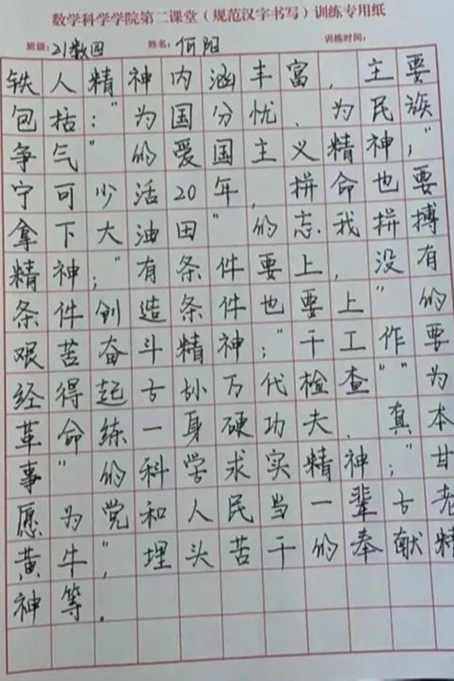 数学科学学院第二课堂（规范汉字书写）训练专用纸
班级：21数四 姓名：何阳 训练时间：
铁人精神内涵丰富，主要
包括："为国分忧、为民族
争气"的爱国主义精神；"
宁可少活20年，拼命也要
拿下大油田"的忘我拼搏
精神；"有条件要上，没有
条件创造条件也要上"的
艰苦奋斗精神；"干工作要
经得起子孙万代检查""为
革命练一身硬功夫、真本
事"的科学求实精神；"甘
愿为党和人民当一辈子老
黄牛"，埋头苦干的奉献精
神等．